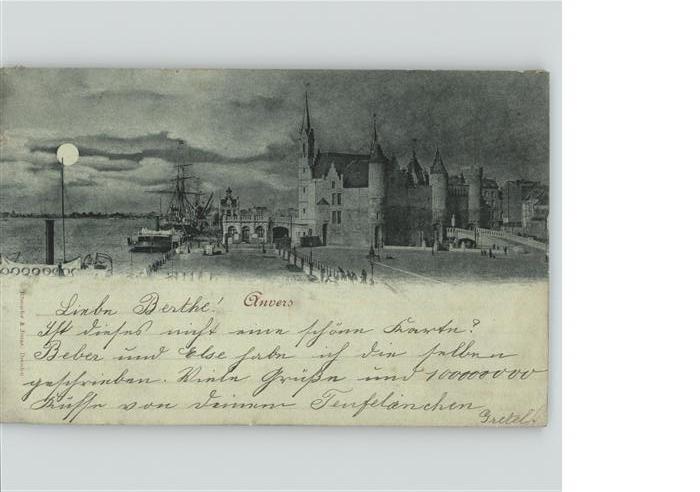 Anvers
Liebe Berthe!
Ist dieses nicht eine schöne Karte?
Beber und Else habe ich die selben
geschrieben. Viele Grüße und 100000000
Küsse von Deinem Teufelänchen
Gretel.